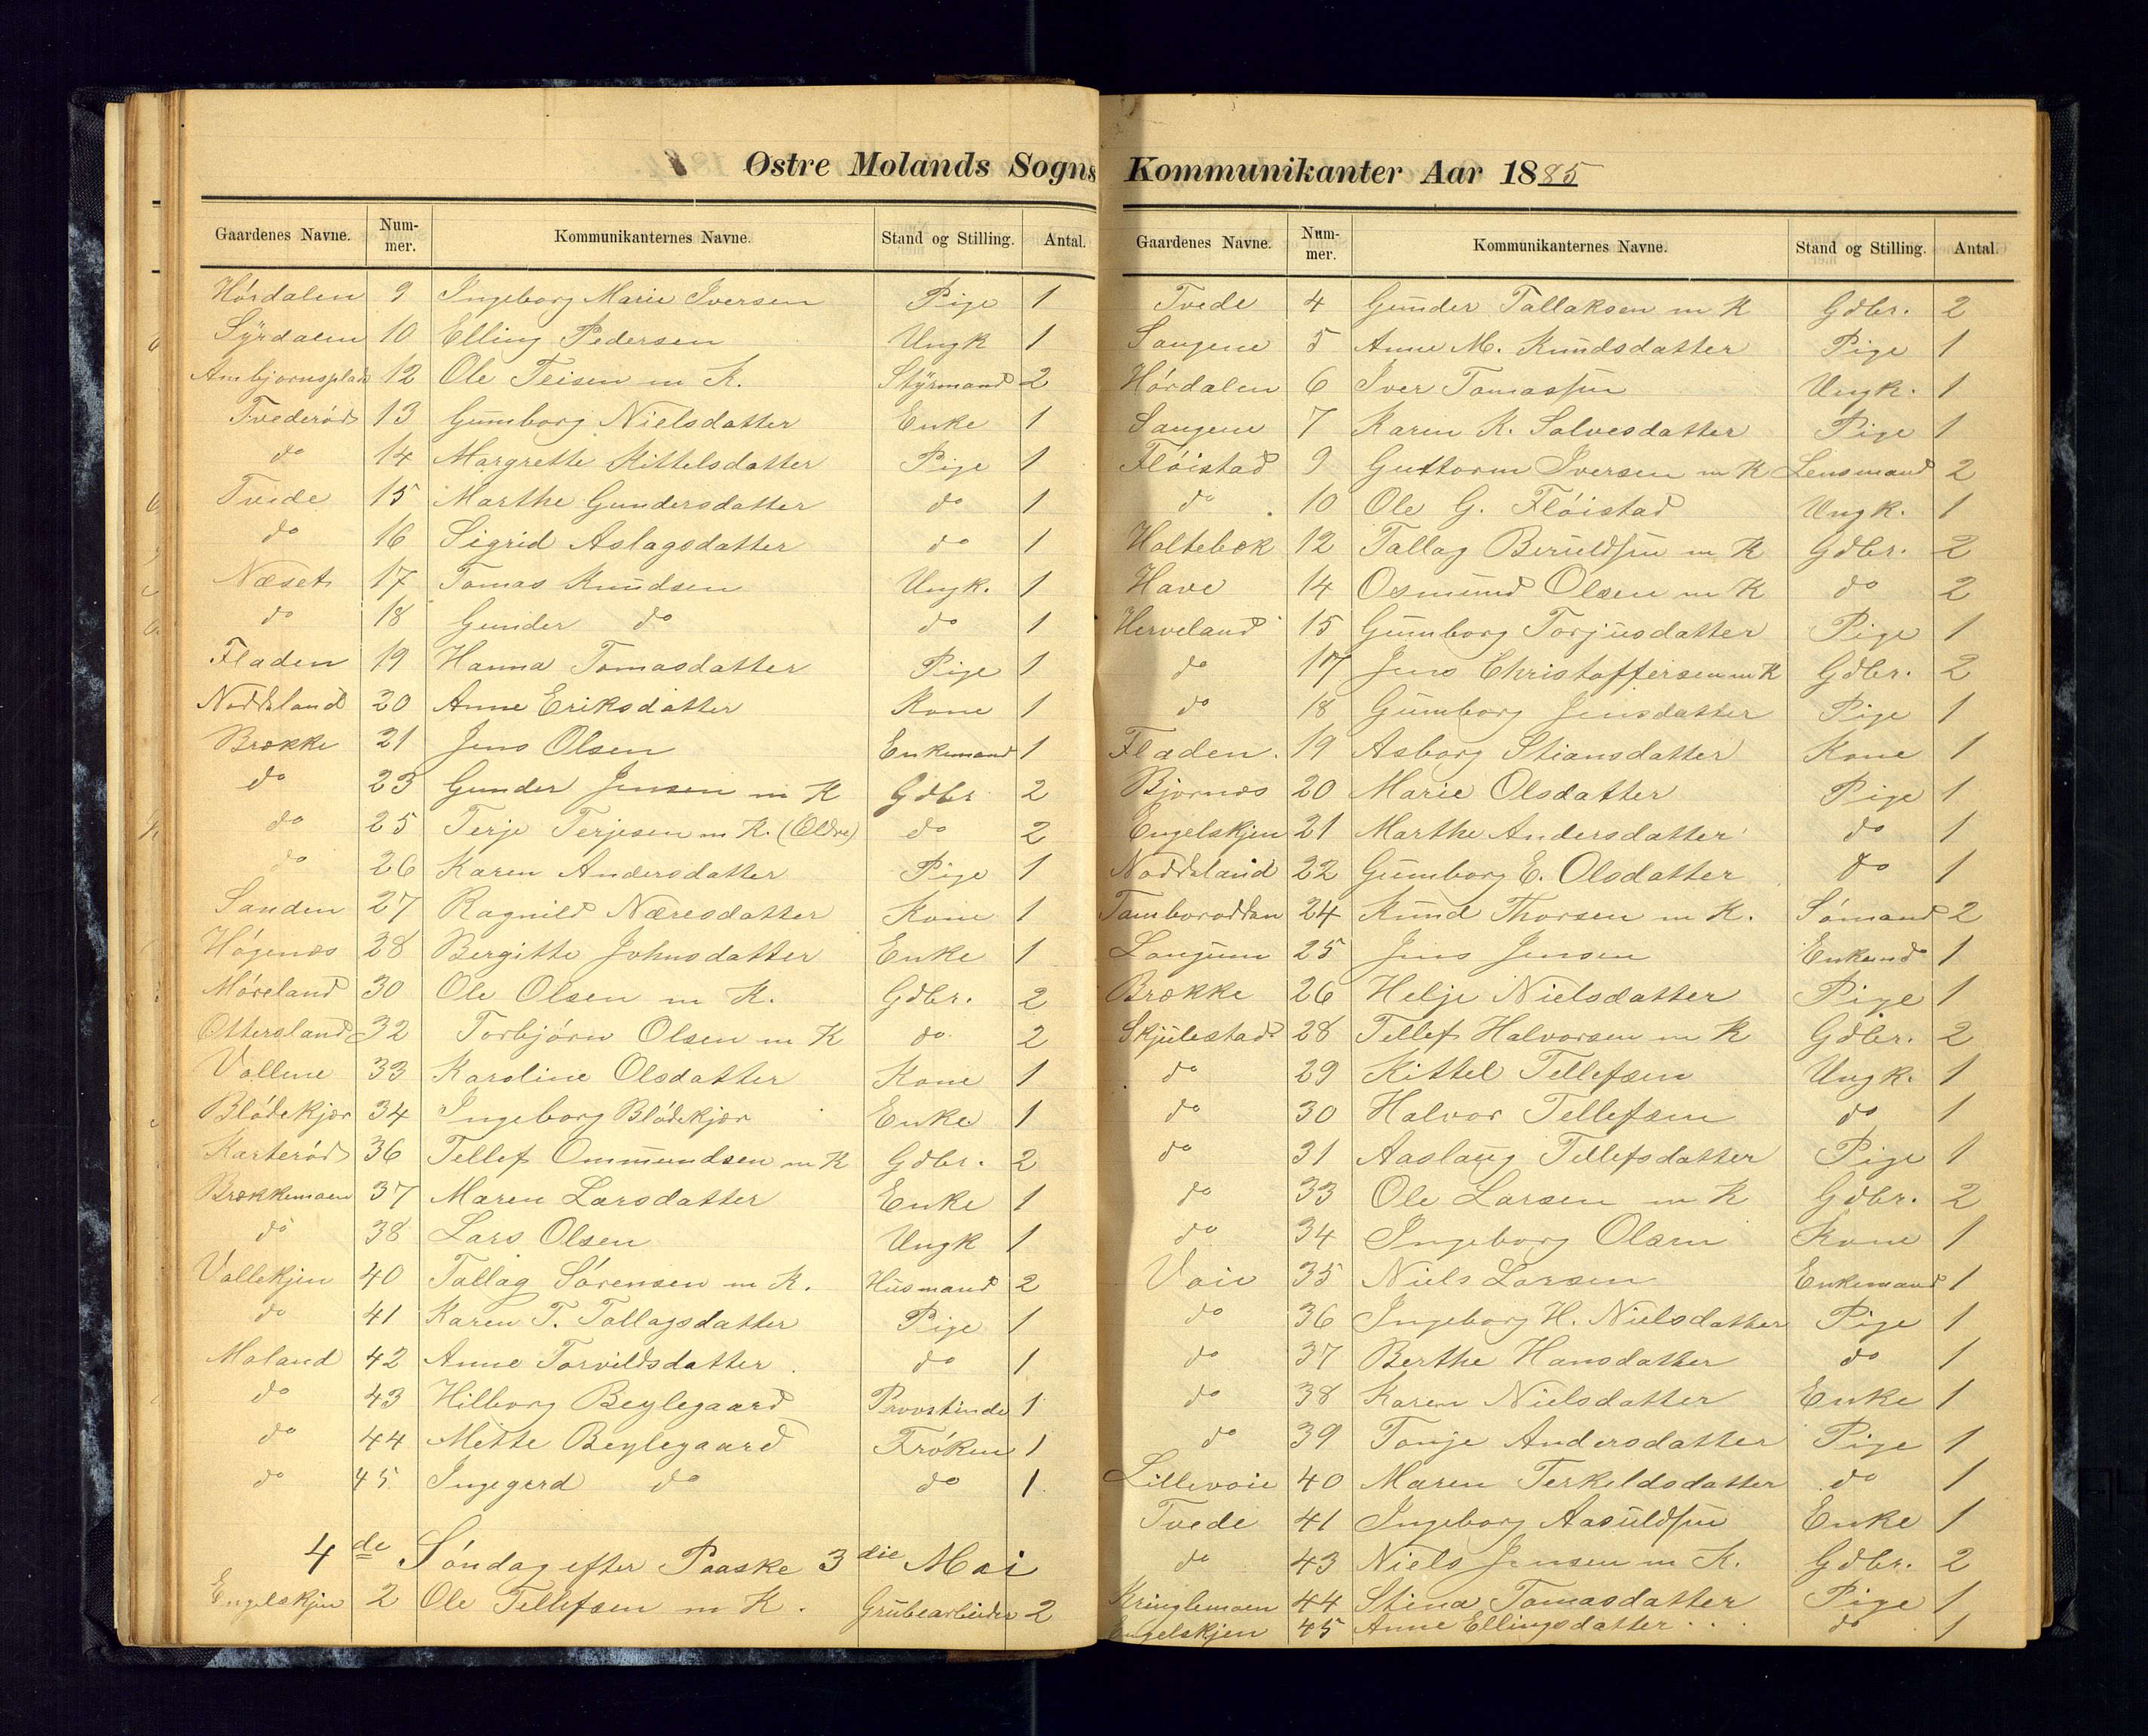 Østre Molands Sogns
Gaardenes Navne. Num-mer. Kommunikanternes Navne. Stand og Stilling. Antal.
Hórdalen 9 Ingeborg Marie Iversen Pige 1
Syrdalen 10 Elling Pedersen Ungk 1
Ambjornsplads 12 Ole Teisen m K. Styrmand 2
Tvederód 13 Gunborg Nielsdatter Enke 1
do 14 Margrethe Kittelsdatter Pige 1
Tvede 15 Marthe Gundersdatter do 1
do 16 Sigrid Aslagsdatter do 1
Næset 17 Tomas Knudsen Ungk. 1
do 18 Gunder do do 1
Fladen 19 Hanna Tomasdatter Pige 1
Noddeland 20 Anne Eriksdatter Kone 1
Brække 21 Jens Olsen Enkemand 1
do 23 Gunder Jensen m K Gdbr 2
do 25 Terje Terjesen m K. (Eldre) do 2
do 26 Karen Andersdatter Pige 1
Sanden 27 Ragnild Næresdatter Kone 1
Hógenæs 28 Bergitte Johnsdatter Enke 1
Móreland 30 Ole Olsen m K. Gdbr. 2
Ottersland 32 Torbjórn Olsen m K do 2
Vollene 33 Karoline Olsdatter Kone 1
Blódekjær 34 Ingeborg Blódekjær Enke 1
Karteród 36 Tellef Ommundsen m K Gdbr. 2
Brækkemoen 37 Maren Larsdatter Enke 1
do 38 Lars Olsen Ungk 1
Vallekjen 40 Tallag Sórensen m K. Husmand 2
do 41 Karen T. Tallagsdatter Pige 1
Moland 42 Anne Torvildsdatter do 1
do 43 Hilborg Beylegaard Provstinde 1
do 44 Mette Beylegaard Fróken 1
do 45 Ingegerd do do 1
4de Sóndag efter Paaske 3die Mai
Engelskjen 2 Ole Tellefsen m K. Grubearbeider 2
Kommunikanter Aar 1885
Gaardenes Navne. Num-mer. Kommunikanternes Navne. Stand og Stilling. Antal.
Tvede 4 Gunder Tallaksen m K Gdbr. 2
Saugene 5 Anne M. Knudsdatter Pige 1
Hórdalen 6 Iver Tomassen Ungk. 1
Saugene 7 Karen K. Salvesdatter Pige 1
Flóistad 9 Guttorm Iversen m K Lensmand 2
do 10 Ole G. Flóistad Ungk. 1
Holtebæk 12 Tallag Beruldsen m K Gdbr. 2
Have 14 Osmund Olsen m K do 2
Herveland 15 Gumborg Torjusdatter Pige 1
do 17 Jens Christoffersen m K Gdbr. 2
do 18 Gumborg Jensdatter Pige 1
Fladen. 19 Asborg Stiansdatter Kone 1
Bjornæs 20 Marie Olsdatter Pige 1
Engelskjen 21 Marthe Andersdatter do 1
Noddeland 22 Gumborg E. Olsdatter do 1
Tamborodden 24 Knud Thorsen m K. Sómand 2
Langum 25 Jens Jensen Enkemd 1
Brække 26 Helje Nielsdatter Pige 1
Skjulestad 28 Tellef Halvorsen m K Gdbr. 2
do 29 Kittel Tellefsen Ungk. 1
do 30 Halvor Tellefsen do 1
do 31 Aaslaug Tellefsdatter Pige 1
do 33 Ole Larsen m K Gdbr. 2
do 34 Ingeborg Olsen Kone 1
Voie 35 Niels Larsen Enkemand 1
do 36 Ingeborg H. Nielsdatter Pige 1
do 37 Berthe Hansdatter do 1
do 38 Karen Nielsdatter Enke 1
do 39 Tonje Andersdatter Pige 1
Lillevoie 40 Maren Terkeldsdatter do 1
Tvede 41 Ingeborg Aasuldsen Enke 1
do 43 Niels Jensen m K. Gdbr. 2
Kringlemoen 44 Stina Tomasdatter Pige 1
Engelskjen 45 Anne Ellingsdatter . . do 1